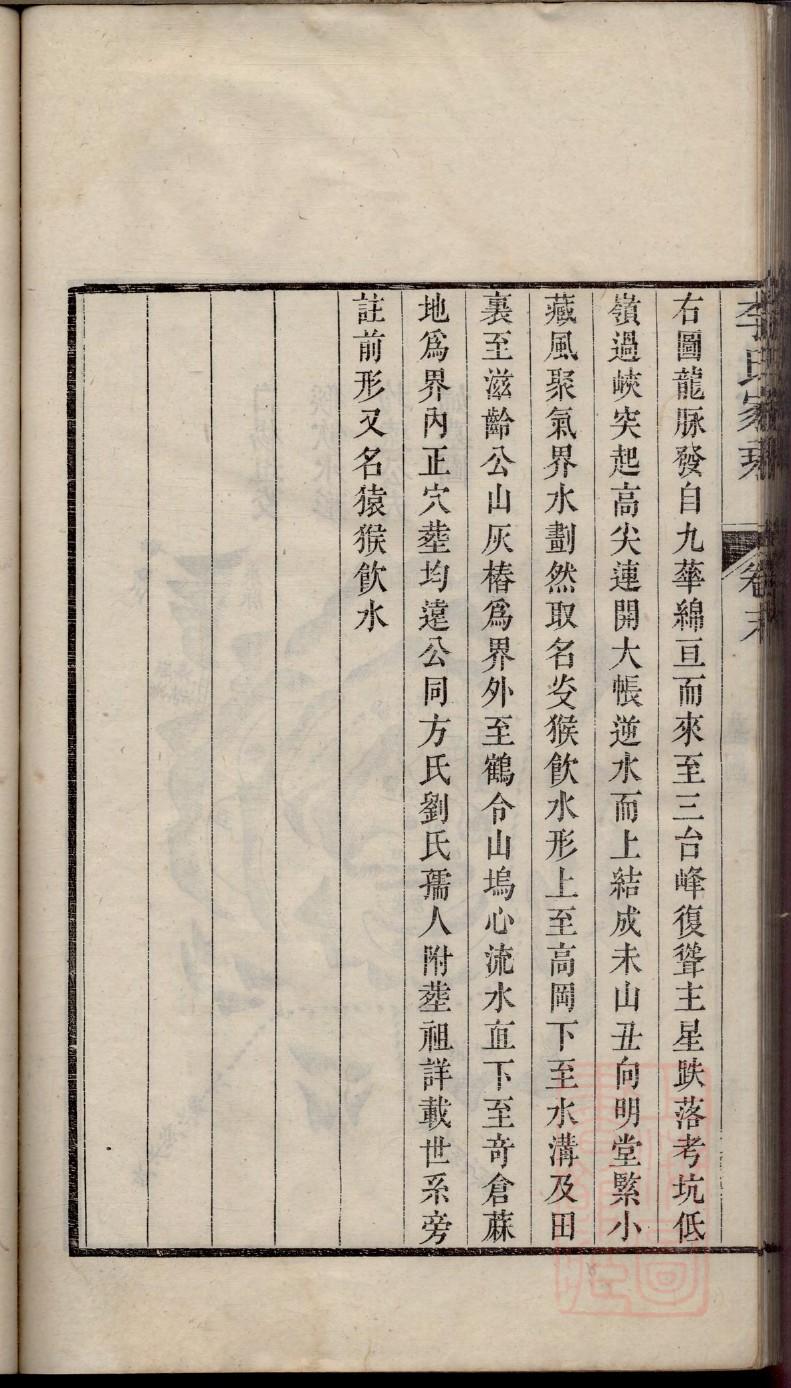 李氏家乘 卷末
右圖龍脉發自九華綿亘而來至三台峰復聳主星跌落考坑低
嶺過峽突起高尖連開大帳逆水而上結成未山丑向明堂緊小
藏風聚氣界水劃然取名㚣猴飲水形上至高岡下至水溝及田
裏至滋齡公山灰樁爲界外至鶴令山塢心流水直下至竒倉蔴
地爲界內正穴塟均遠公同方氏劉氏孺人附塟祖詳載世系旁
註前形又名猿猴飲水